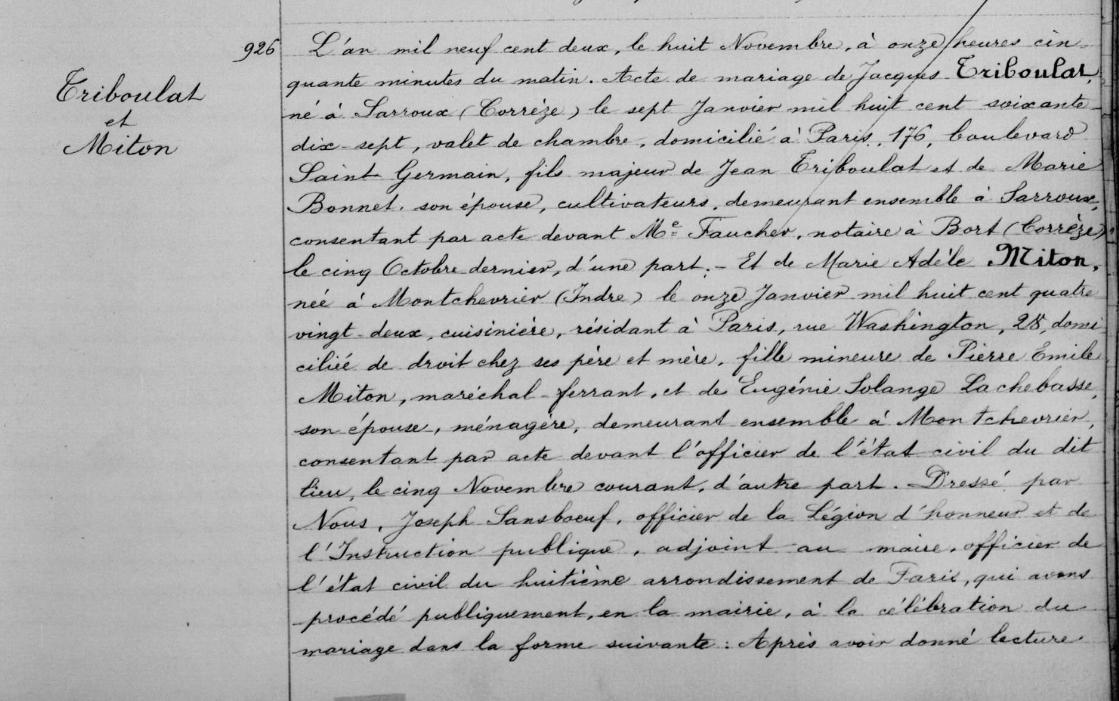 926
Triboulat
et
Miton
L'an mil neuf cent deux, le huit Novembre, à onze heures cin-
quante minutes du matin. Acte de mariage de Jacques Triboulat,
né à Sarroux (Corrèze) le sept Janvier mil huit cent soixante-
dix-sept, valet de chambre, domicilié à Paris, 176, boulevard
Saint Germain, fils majeur de Jean Triboulat et de Marie
Bonnet, son épouse, cultivateurs, demeurant ensemble à Sarroux,
consentant par acte devant Me Faucher, notaire à Bort (Corrèze)
le cinq Octobre dernier, d'une part. - Et de Marie Adèle Miton,
née à Montchevrier (Indre) le onze Janvier mil huit cent quatre
vingt-deux, cuisinière, résidant à Paris, rue Washington, 28, domi
ciliée de droit chez ses père et mère, fille mineure de Pierre Emile
Miton, maréchal-ferrant, et de Eugénie Solange Lachebasse,
son épouse, ménagère, demeurant ensemble à Montchevrier,
consentant par acte devant l'officier de l'état civil du dit
lieu, le cinq Novembre courant, d'autre part. Dressé par
Nous, Joseph Sansboeuf, officier de la Légion d'honneur et de
l'Instruction publique, adjoint au maire, officier de
l'état civil du huitième arrondissement de Paris, qui avons
procédé publiquement, en la mairie, à la célébration du
mariage dans la forme suivante : Après avoir donné lecture